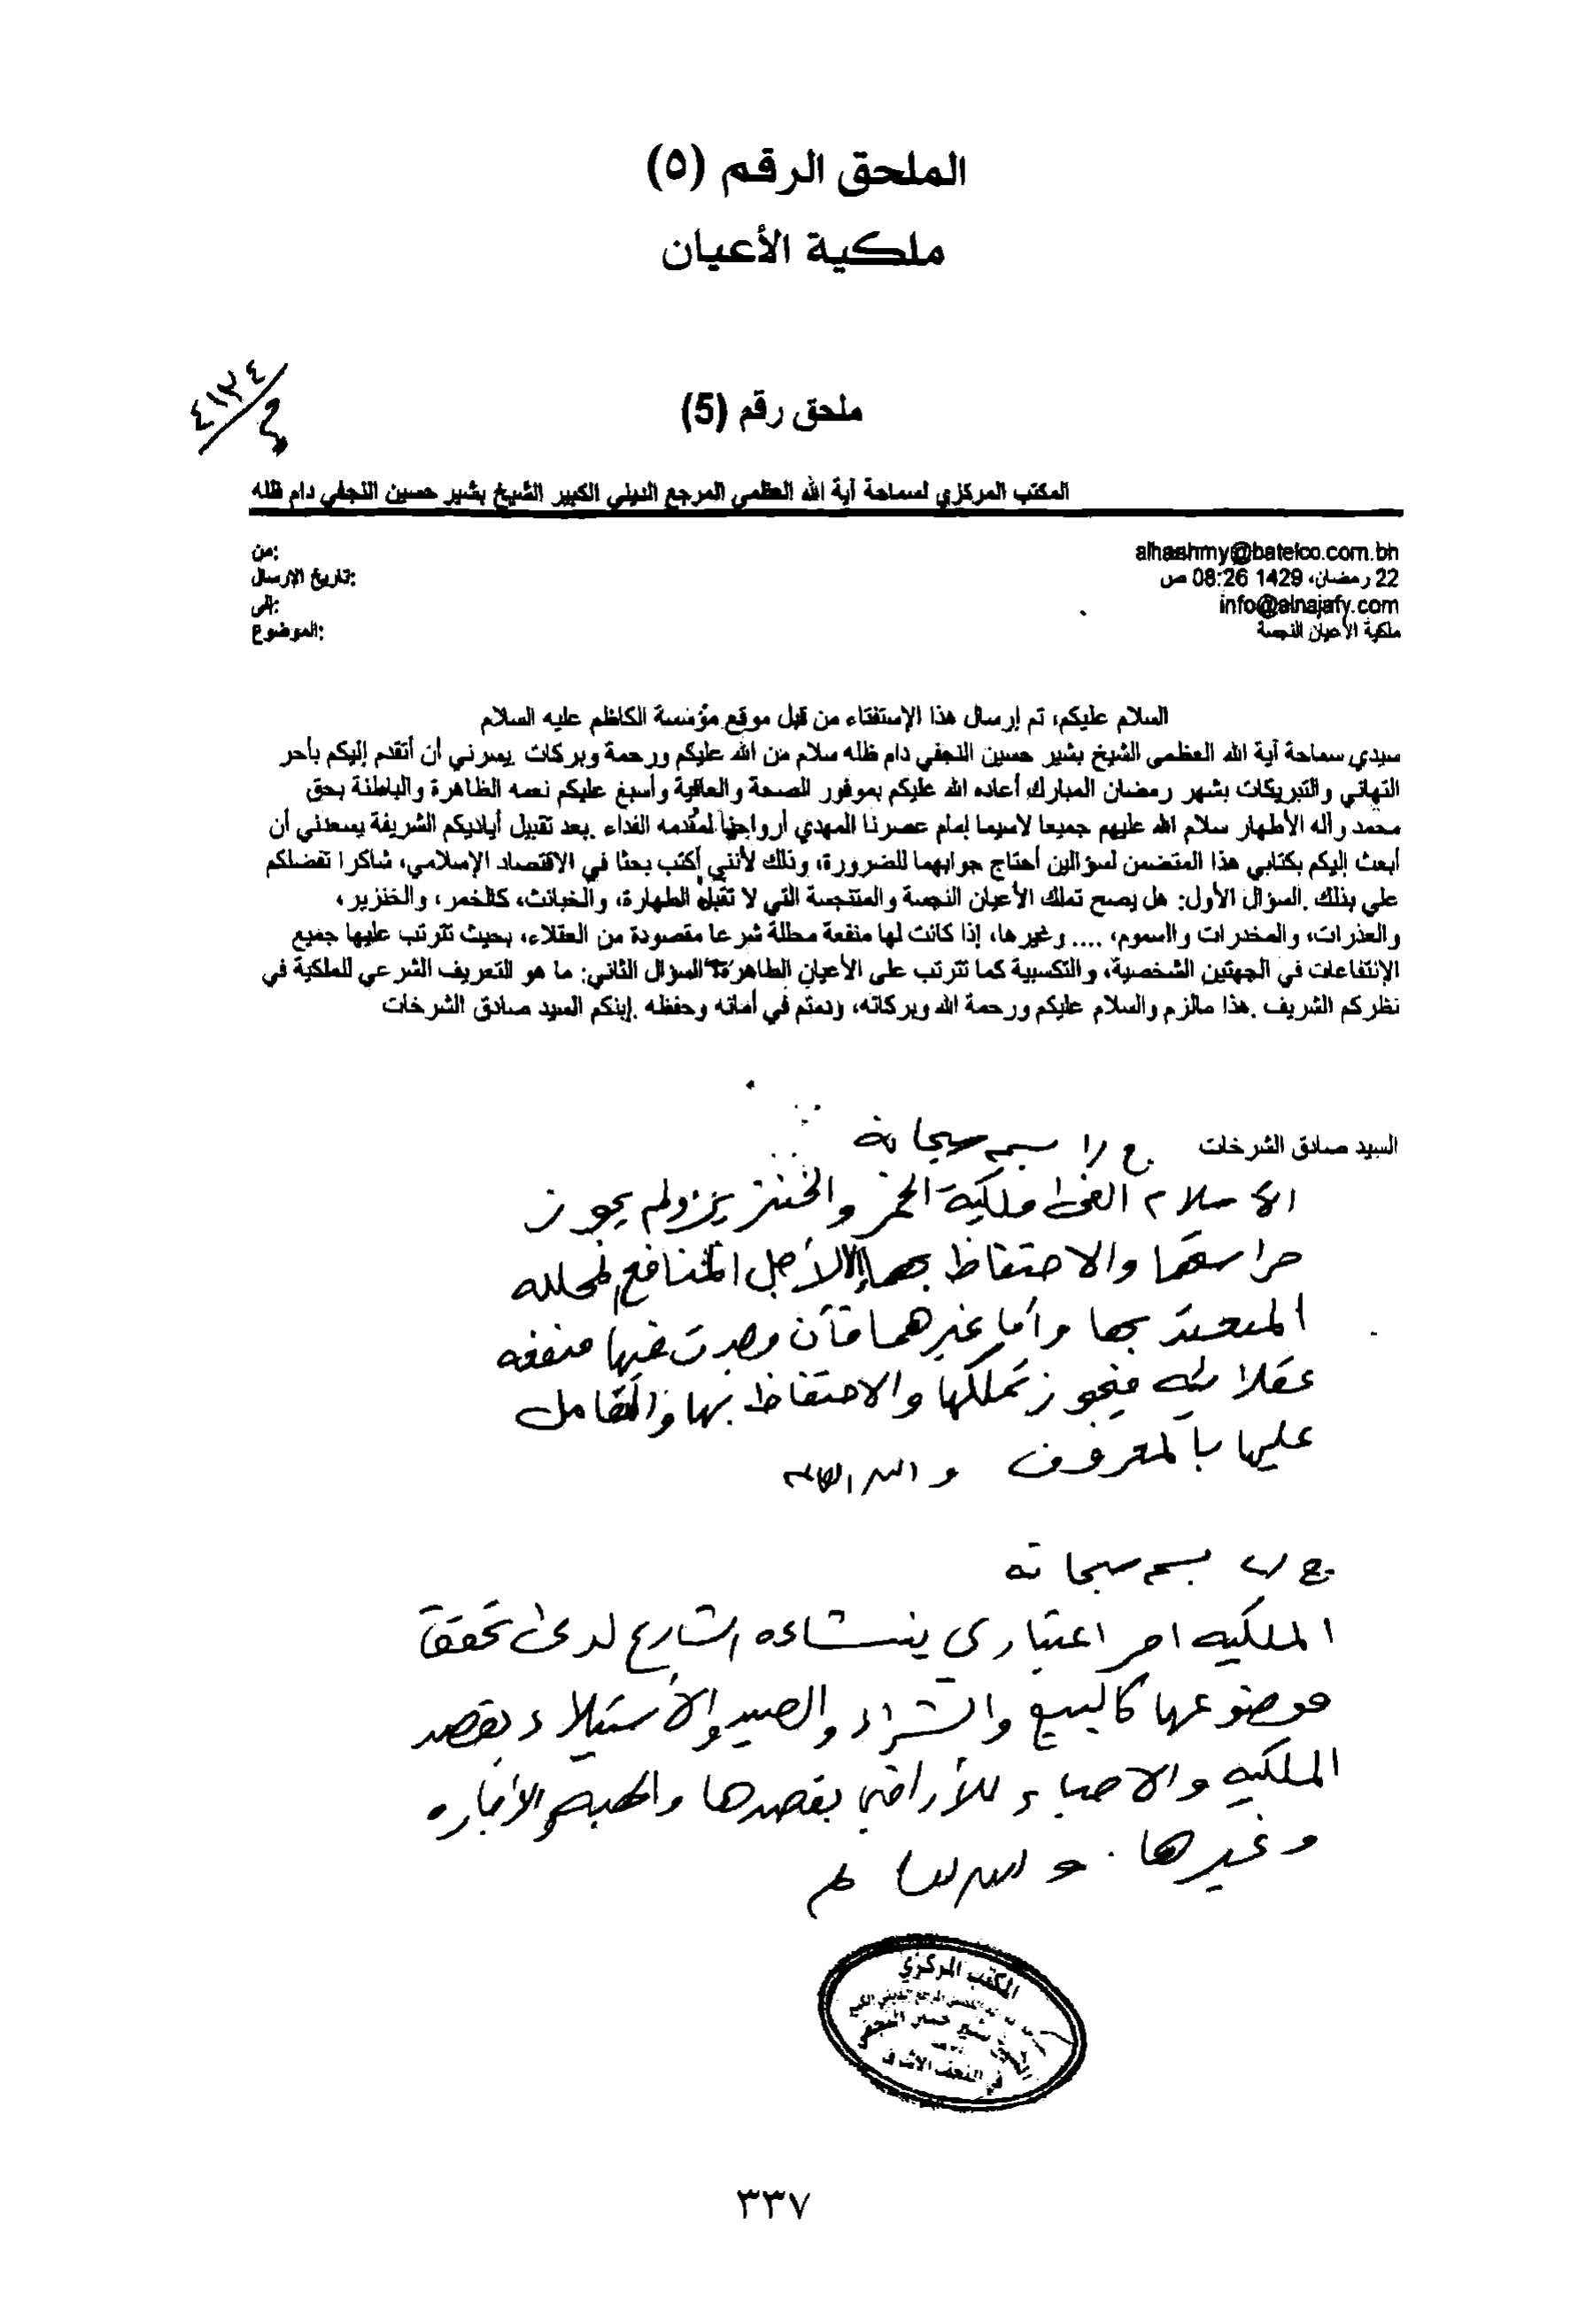 الملحق الرقم (٥)
ملكية الأعيان
٤١٣٤
ملحق رقم (5)
المكتب المركزي لسماحة آية الله العظمى المرجع الديني الكبير الشيخ بشير حسين النجفي دام ظله
من: alhashmy@batelco.com.bh
تاريخ الإرسال: 22 رمضان، 1429 08:26 ص
إلى: info@alnajafy.com
الموضوع: ملكية الأعيان النجسة
السلام عليكم، تم إرسال هذا الإستفتاء من قبل موقع مؤسسة الكاظم عليه السلام
سيدي سماحة آية الله العظمى الشيخ بشير حسين النجفي دام ظله سلام من الله عليكم ورحمة وبركات يسرني أن أتقدم إليكم بأحر
التهاني والتبريكات بشهر رمضان المبارك أعاده الله عليكم بموفور الصحة والعافية وأسبغ عليكم نعمه الظاهرة والباطنة بحق
محمد وآله الأطهار سلام الله عليهم جميعا لاسيما إمام عصرنا المهدي أرواحنا لمقدمه الفداء .بعد تقبيل أياديكم الشريفة يسعدني أن
أبعث إليكم بكتابي هذا المتضمن لسؤالين أحتاج جوابهما للضرورة، وذلك لأنني أكتب بحثا في الاقتصاد الإسلامي، شاكرا تفضلكم
علي بذلك .السؤال الأول: هل يصح تملك الأعيان النجسة والمتنجسة التي لا تقبل الطهارة، والخبائث، كالخمر، والخنزير،
والعذرات، والمخدرات والسموم، .... وغيرها، إذا كانت لها منفعة محللة شرعا مقصودة من العقلاء، بحيث تترتب عليها جميع
الإنتفاعات في الجهتين الشخصية، والتكسبية كما تترتب على الأعيان الطاهرة؟ السؤال الثاني: ما هو التعريف الشرعي للملكية في
نظركم الشريف .هذا مالزم والسلام عليكم ورحمة الله وبركاته، ودمتم في أمانه وحفظه .إبنكم السيد صادق الشرخات
السيد صادق الشرخات ج ١/ بسمه سبحانه
الاسلام الغى ملكية الخمر والخنزير ولم يجوز
حراستهما والاحتفاظ بهما إلا لأجل المنافع المحلله
المعتد بها وأما غيرهما فأن وجدت فيها منفعه
عقلائيه فيجوز تملكها والاحتفاظ بها والتعامل
عليها بالمعروف والله العالم
ج ٢/ بسمه سبحانه
الملكيه امر اعتباري ينشاءه الشارع لدى تحقق
موضوعها كالبيع والشراء والصيد والأستيلاء بقصد
الملكيه والاحياء للأراضي بقصدها والهبه والأجاره
وغيرها . والله العالم
المكتب المركزي
بشير حسين النجفي
في النجف الاشرف
٣٣٧